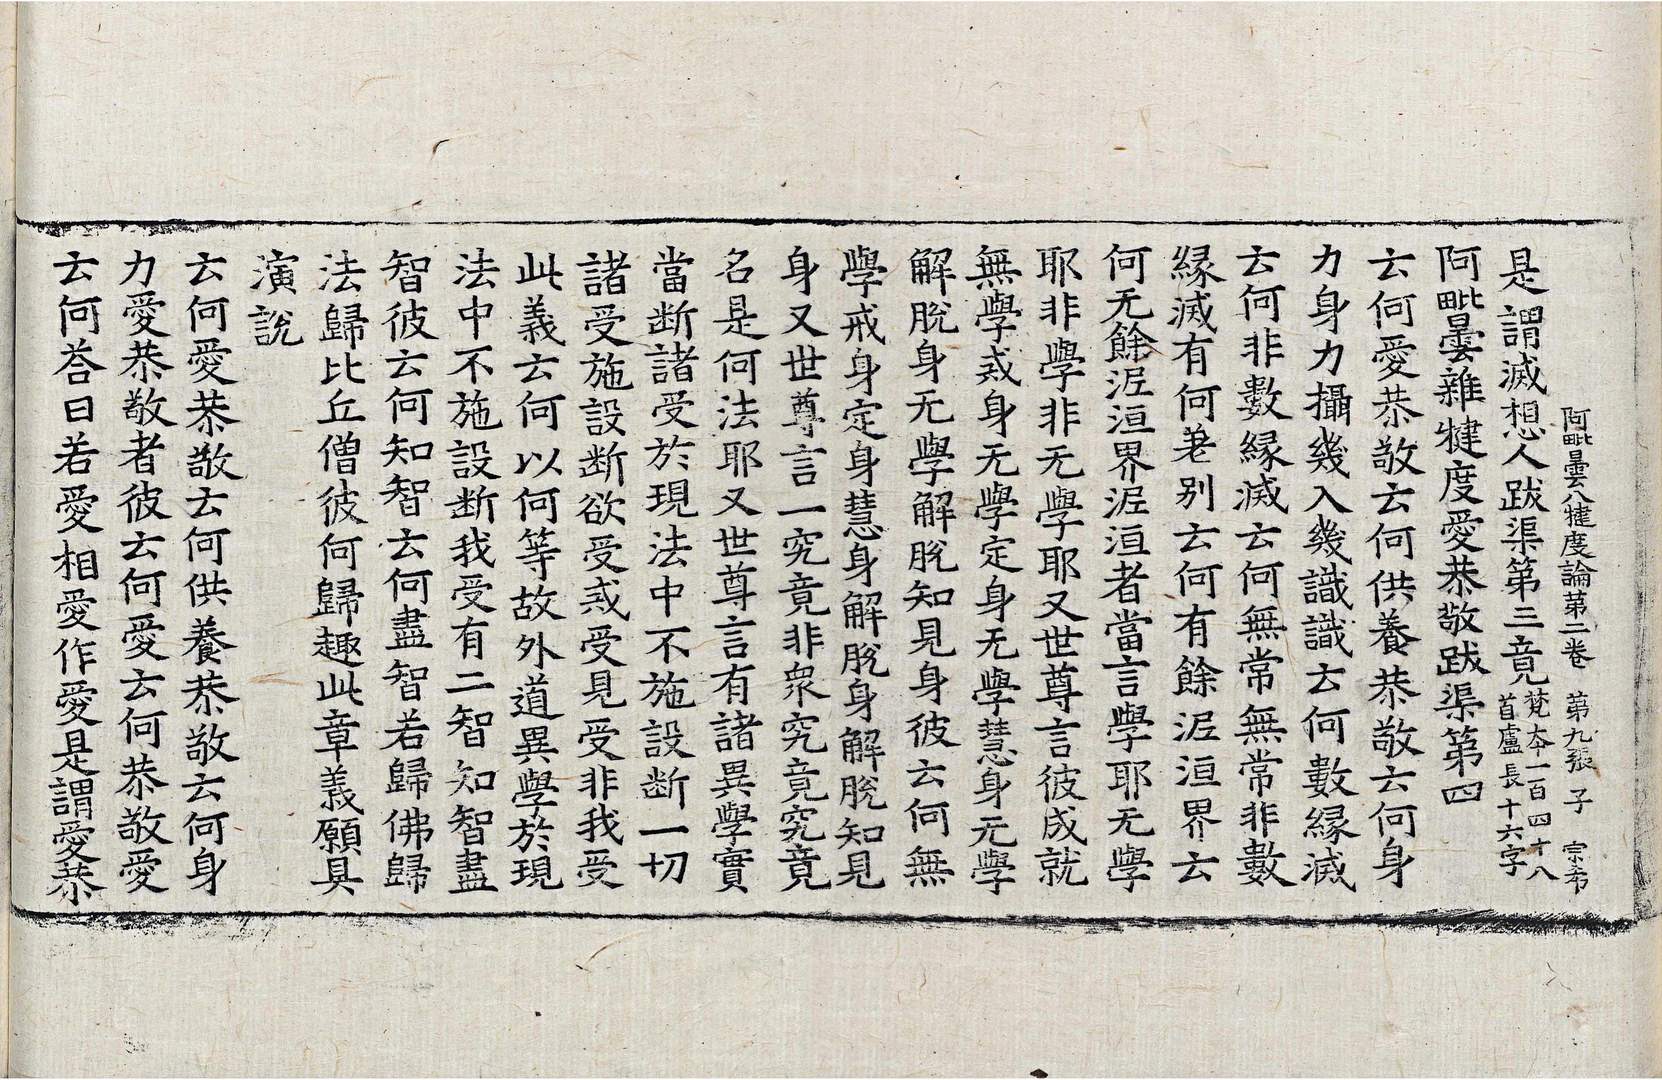 阿毗曇八犍度論第二卷　第九張　子　宗希
是謂滅想人跋渠第三竟梵本一百四十八首盧長十六字
阿毗曇雜犍度愛恭敬跋渠第四
云何愛恭敬云何供養恭敬云何身
力身力攝幾入幾識識云何數緣滅
云何非數緣滅云何無常無常非數
緣滅有何差別云何有餘泥洹界云
何无餘泥洹界泥洹者當言學耶无學
耶非學非无學耶又世尊言彼成就
無學戒身无學定身无學慧身无學
解脫身无學解脫知見身彼云何無
學戒身定身慧身解脫身解脫知見
身又世尊言一究竟非衆究竟究竟
名是何法耶又世尊言有諸異學實
當斷諸受於現法中不施設斷一切
諸受施設斷欲受戒受見受非我受
此義云何以何等故外道異學於現
法中不施設斷我受有二智知智盡
智彼云何知智云何盡智若歸佛歸
法歸比丘僧彼何歸趣此章義願具
演說
云何愛恭敬云何供養恭敬云何身
力愛恭敬者彼云何愛云何恭敬愛
云何荅曰若愛相愛作愛是謂愛恭